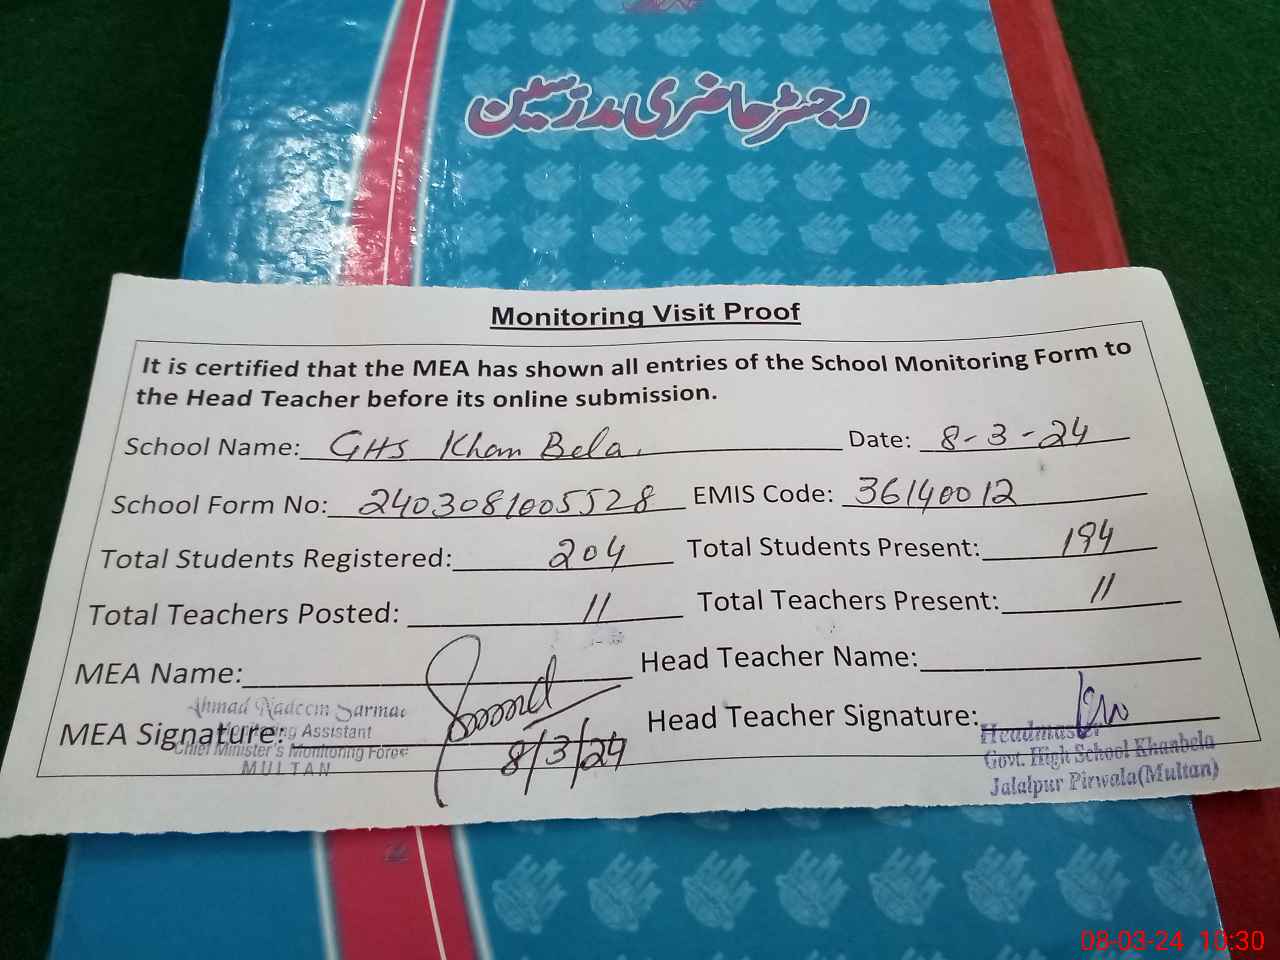 رجسٹر حاضری مدرسین
Monitoring Visit Proof
It is certified that the MEA has shown all entries of the School Monitoring Form to
the Head Teacher before its online submission.
School Name: GHS Khan Bela. Date: 8-3-24
School Form No: 2403081005528 EMIS Code: 36140012
Total Students Registered: 204 Total Students Present: 194
Total Teachers Posted: 11 Total Teachers Present: 11
MEA Name: Head Teacher Name:
Ahmad Nadeem Sarmad
MEA Signature: Head Teacher Signature:
Monitoring Assistant
Chief Minister's Monitoring Force
MULTAN
8/3/24
Headmaster
Govt. High School Khanbela
Jalalpur Pirwala(Multan)
08-03-24 10:30